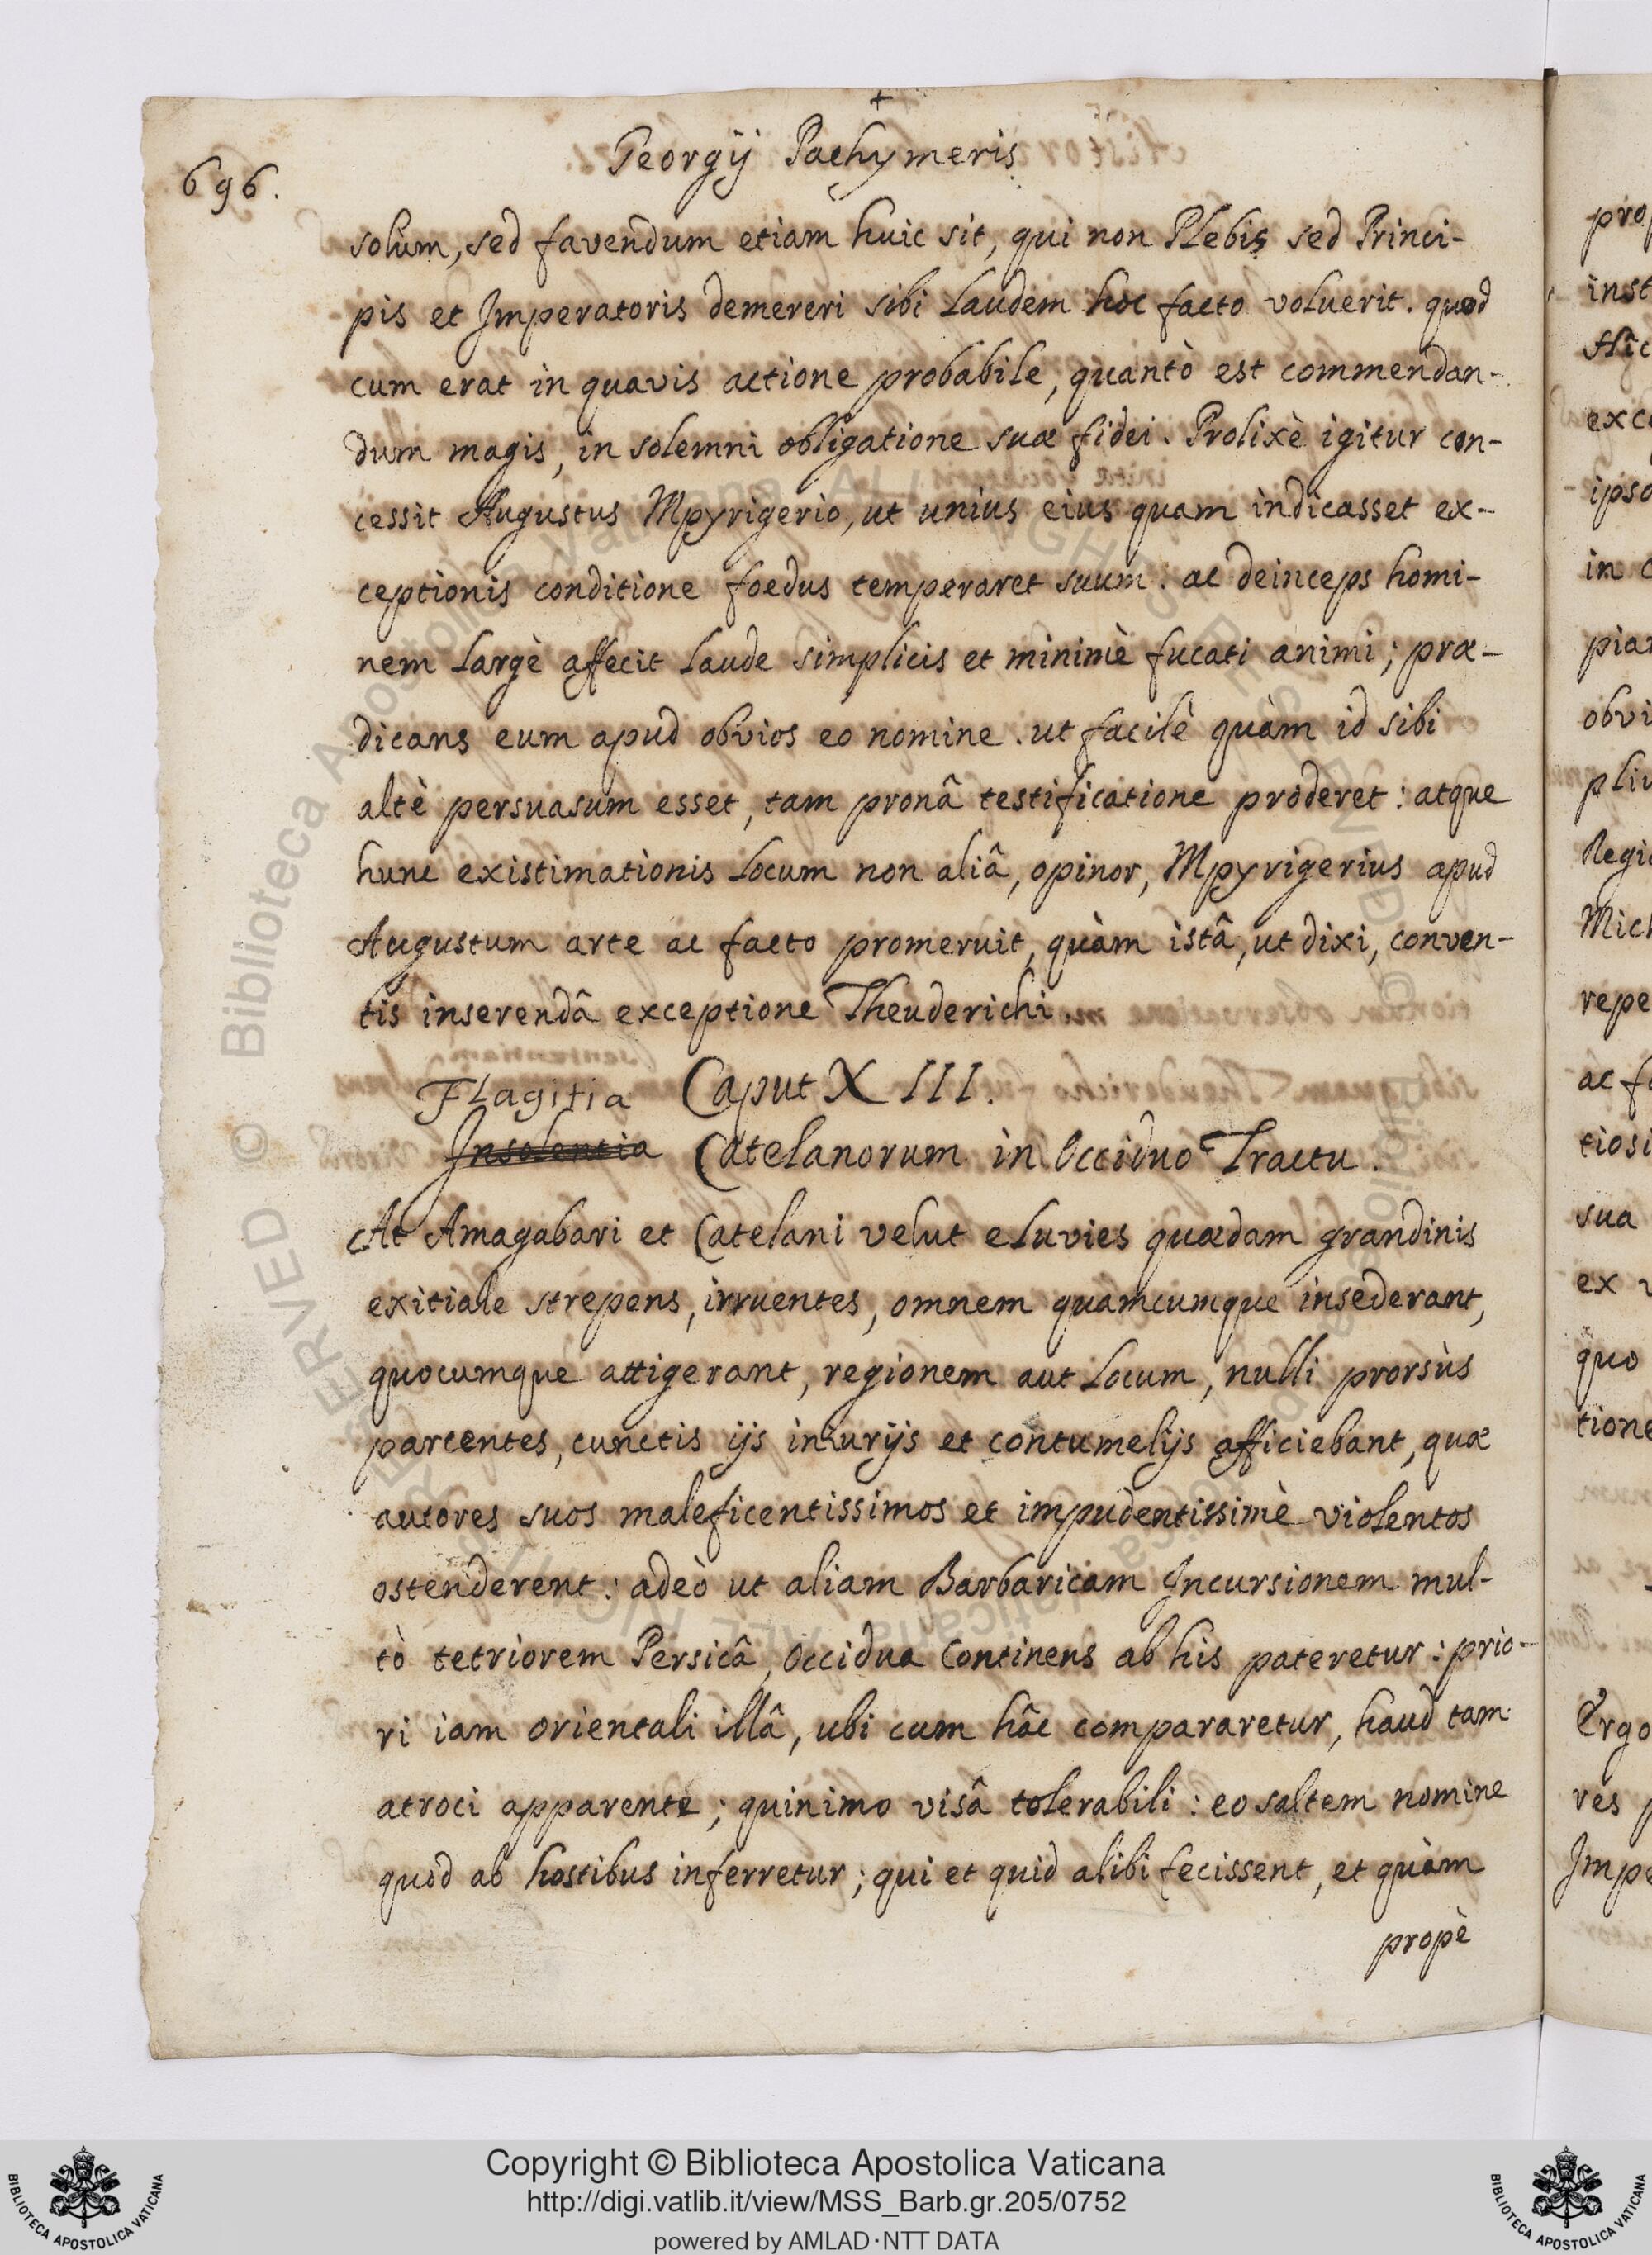 +
696.
Georgÿ Pachymeris
solùm, sed favendum etiam huic sit, qui non Plebis sed Princi-
pis et Imperatoris demereri sibi Laudem hoc facto voluerit. quod
cum erat in quavis actione probabile, quantò est commendan-
dum magis, in solemni obligatione suæ fidei. Prolixè igitur con-
cessit Augustus Mpyrigerio, ut unius eius quam indicasset ex-
ceptionis conditione foedus temperaret suum: ac deinceps homi-
nem Largè affecit Laude simplicis et minimè fucati animi; præ-
dicans eum apud obvios eo nomine. ut facilè quàm id sibi
altè persuasum esset, tam pronâ testificatione proderet: atque
hunc existimationis Locum non aliâ, opinor, Mpyrigerius apud
Augustum arte ac facto promeruit, quàm istâ, ut dixi, conven-
tis inserendâ exceptione Theuderichi.
Flagitia Caput XIII.
Insolentia Catelanorum in Occiduo Tractu.
At Amagabari et Catelani velut eluvies quædam grandinis
exitiale strepens, irruentes, omnem quamcumque insederant,
quocumque attigerant, regionem aut Locum, nulli prorsùs
parcentes, cunctis ijs iniurijs et contumelijs afficiebant, quæ
autores suos maleficentissimos et impudentissimè violentos
ostenderent: adeò ut aliam Barbaricam Incursionem mul-
tò tetriorem Persicâ, Occidua Continens ab his pateretur: prio-
ri iam orientali illâ, ubi cum hâc compararetur, haud tam
atroci apparente; quinimo visâ tolerabili: eo saltem nomine
quod ab hostibus inferretur; qui et quid alibi fecissent, et quàm
propè
pro
inst
Hic
exce
ipso
in
piar
obvi
pliu
Regi
Mich
repe
ac f
tiosi
sua
ex
quo
tione
Ergo
res
Impe
Copyright © Biblioteca Apostolica Vaticana
http://digi.vatlib.it/view/MSS_Barb.gr.205/0752
powered by AMLAD·NTT DATA
BIBLIOTECA APOSTOLICA VATICANA
BIBLIOTECA APOSTOLICA VATICANA